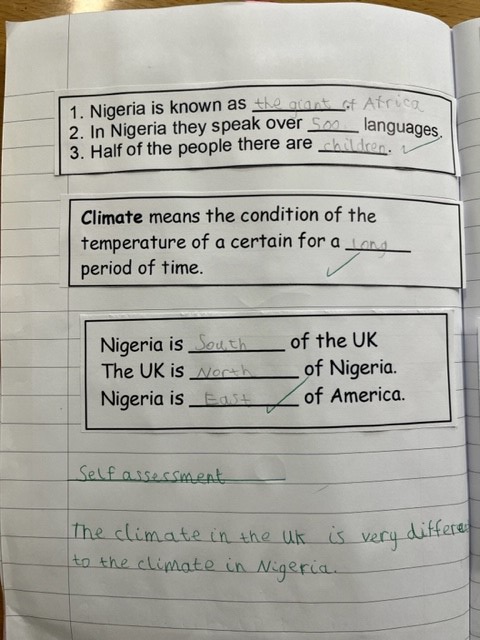 1. Nigeria is known as the giant of Africa
2. In Nigeria they speak over 500 languages.
3. Half of the people there are children.
Climate means the condition of the
temperature of a certain for a long
period of time.
Nigeria is South of the UK
The UK is North of Nigeria.
Nigeria is East of America.
Self assessment
The climate in the UK is very
to the climate in Nigeria.